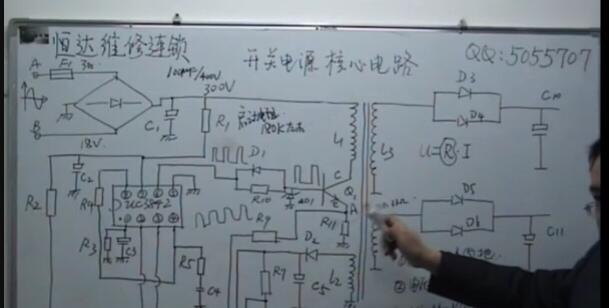 恒达维修连锁
开关电源核心电路
QQ:5055707
A
F1
3A
100µF/400V
300V
D3
C10
D4
C1
R1
启动电阻
180K左右
L1
L3
U=R·I
B
18V
D1
C
Q1
A
C2
R2
R4
UC3842
R10
R9
R11
D5
D6
C11
R3
C3
R5
D2
R7
C5
L2
C4